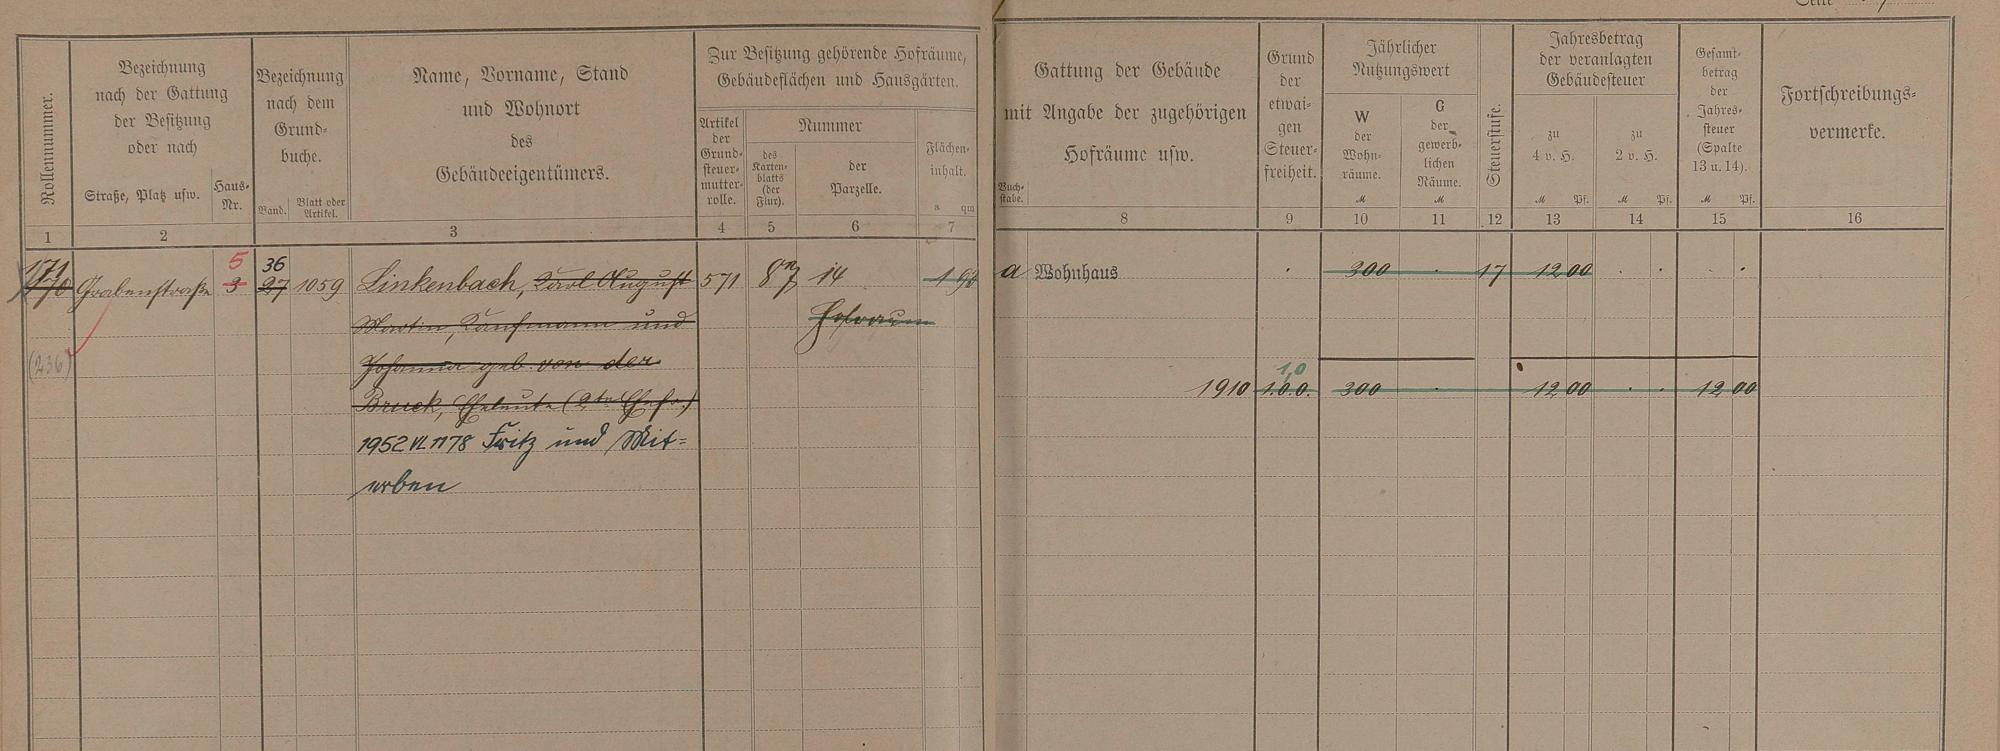 Rollennummer.
Bezeichnung
nach der Gattung
der Besitzung
oder nach
Straße, Platz usw.
Haus-
Nr.
Bezeichnung
nach dem
Grund-
buche.
Band.
Blatt oder
Artikel.
Name, Vorname, Stand
und Wohnort
des
Gebäudeeigentümers.
Zur Besitzung gehörende Hofräume,
Gebäudeflächen und Hausgärten.
Artikel
der
Grund-
steuer-
mutter-
rolle.
Nummer
des
Karten-
blatts
(der
Flur).
der
Parzelle.
Flächen-
inhalt.
a qm
Gattung der Gebäude
mit Angabe der zugehörigen
Hofräume usw.
Buch-
stabe.
Grund
der
etwai-
gen
Steuer-
freiheit.
Jährlicher
Nutzungswert
W
der
Wohn-
räume.
M
G
der
gewerb-
lichen
Räume.
M
Steuerstufe.
Jahresbetrag
der veranlagten
Gebäudesteuer
zu
4 v. H.
M Pf.
zu
2 v. H.
M Pf.
Gesamt-
betrag
der
Jahres-
steuer
(Spalte
13 u. 14).
M Pf.
Fortschreibungs-
vermerke.
1 2 3 4 5 6 7 8 9 10 11 12 13 14 15 16
171 5 36
170 Grabenstraße 3 27 1059 Linkenbach, Karl August 571 8 14 1 93 a Wohnhaus 300 17 12 00
Martin, Kaufmann und Hofraum
(236) Johanna geb. von der
Bruck, Eheleute (2te Ehefr.) 1910 300 12 00 12 00
1952 VI 1178 Fritz und Mit-
erben